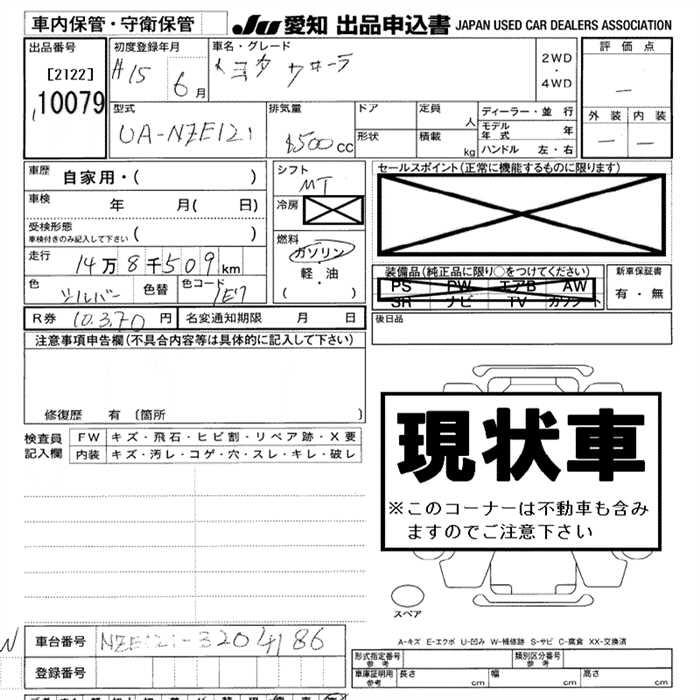 車内保管・守衛保管
JU 愛知 出品申込書 JAPAN USED CAR DEALERS ASSOCIATION
出品番号
[2122]
10079
初度登録年月
H15 6月
車名・グレード
トヨタ カローラ
2WD
・
4WD
評価点
—
外装 内装
— —
型式
UA-NZE121
排気量
1500 CC
ドア
形状
定員 人
積載 kg
ディーラー・並 行
モデル年式 年
ハンドル 左・右
車歴 自家用・( )
車検 年 月( 日)
受検形態
車検付きのみ記入して下さい ( )
走行 14万8千509km
色 シルバー 色替 色コード 1E7
R券 10,370円 名変通知期限 月 日
シフト
MT
冷房
燃料
ガソリン
・
軽・油
( )
セールスポイント(正常に機能するものに限ります)
装備品(純正品に限り○をつけてください)
PS PW エアB AW
SR ナビ TV カワシート
新車保証書
有・無
後日品
注意事項申告欄(不具合内容等は具体的に記入して下さい)
修復歴 有 〔箇所 〕
検査員
記入欄
FW キズ・飛石・ヒビ割・リペア跡・X要
内装 キズ・汚レ・コゲ・穴・スレ・キレ・破レ
現状車
※このコーナーは不動車も含み
ますのでご注意下さい
スペア
A-キズ E-エクボ U-凹み W-補修跡 S-サビ C-腐食 XX-交換済
車台番号 NZE121-3204186
登録番号
形式指定番号
参考
類別区分番号
参考
車庫証明用
参考
長さ cm 幅 cm 高さ cm